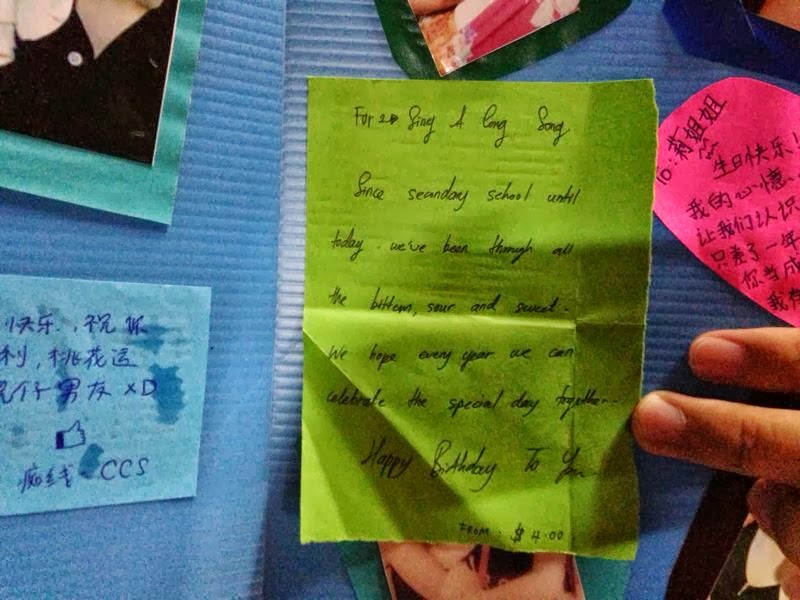 For 2B Sing A Long Song
Since secondary school until
today. we've been through all
the bittern, sour and sweet.
We hope every year we can
celebrate the special day together..
Happy Birthday To You
FROM: $4.00
快乐.,祝你
利,桃花运
男友 XD
痴线 CCS
To:莉姐姐
生日快乐!
我的心憶
让我们认识
只差了一年
你当成
我